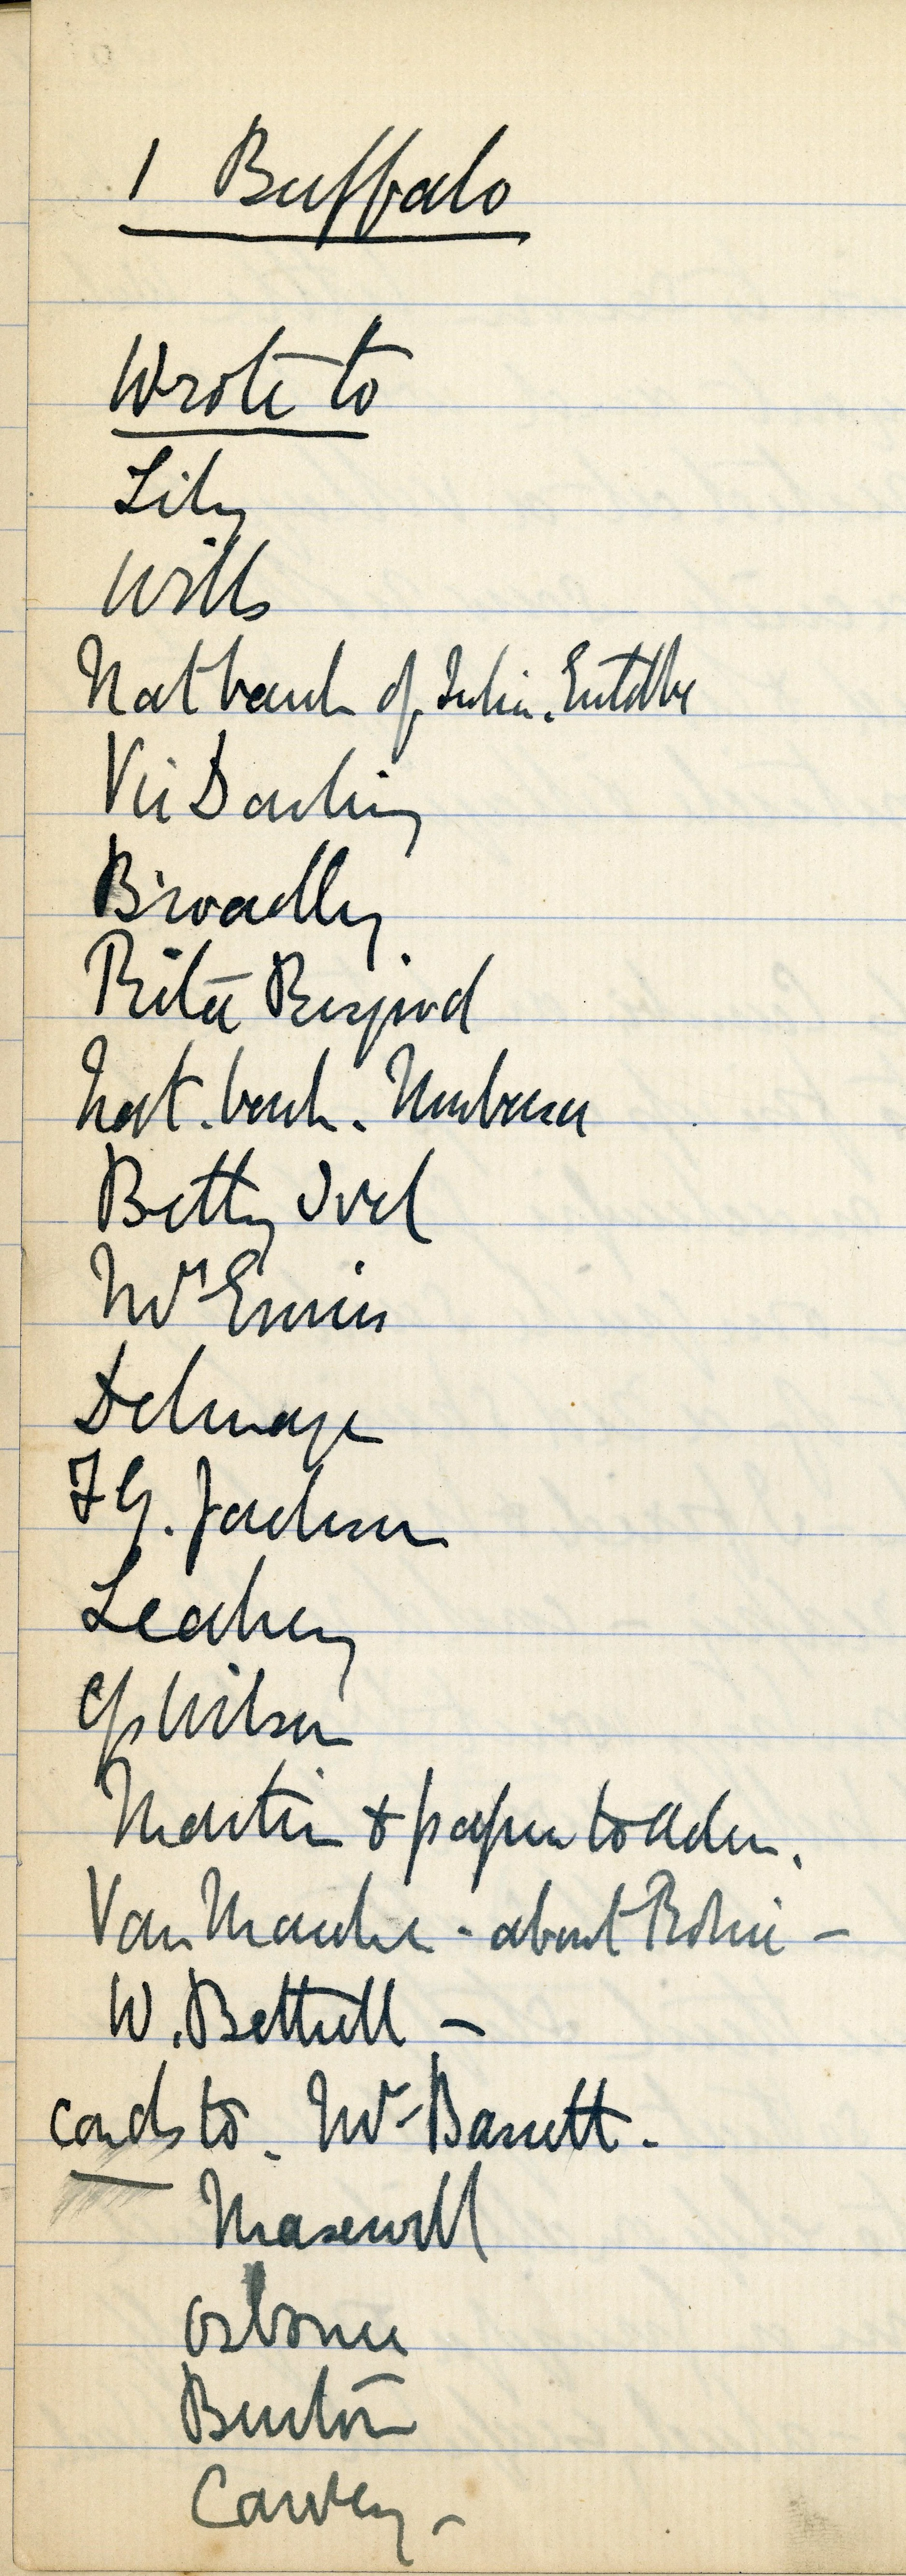 1 Buffalo
Wrote to
Lily
Wills
Nat bank of India. Entebbe
Vic Darling
Broadley
Rita
Nat. bank. Mombasa
Betty
Mrs Ennis
Delmage
F G. Jackson
Leahey
Wilson
Martin & papers to Aden.
Van Marche - about Robin -
W. Bettrell -
cards to. Mr Barrett.
Maxwell
Osborne
Burton
Carvey -